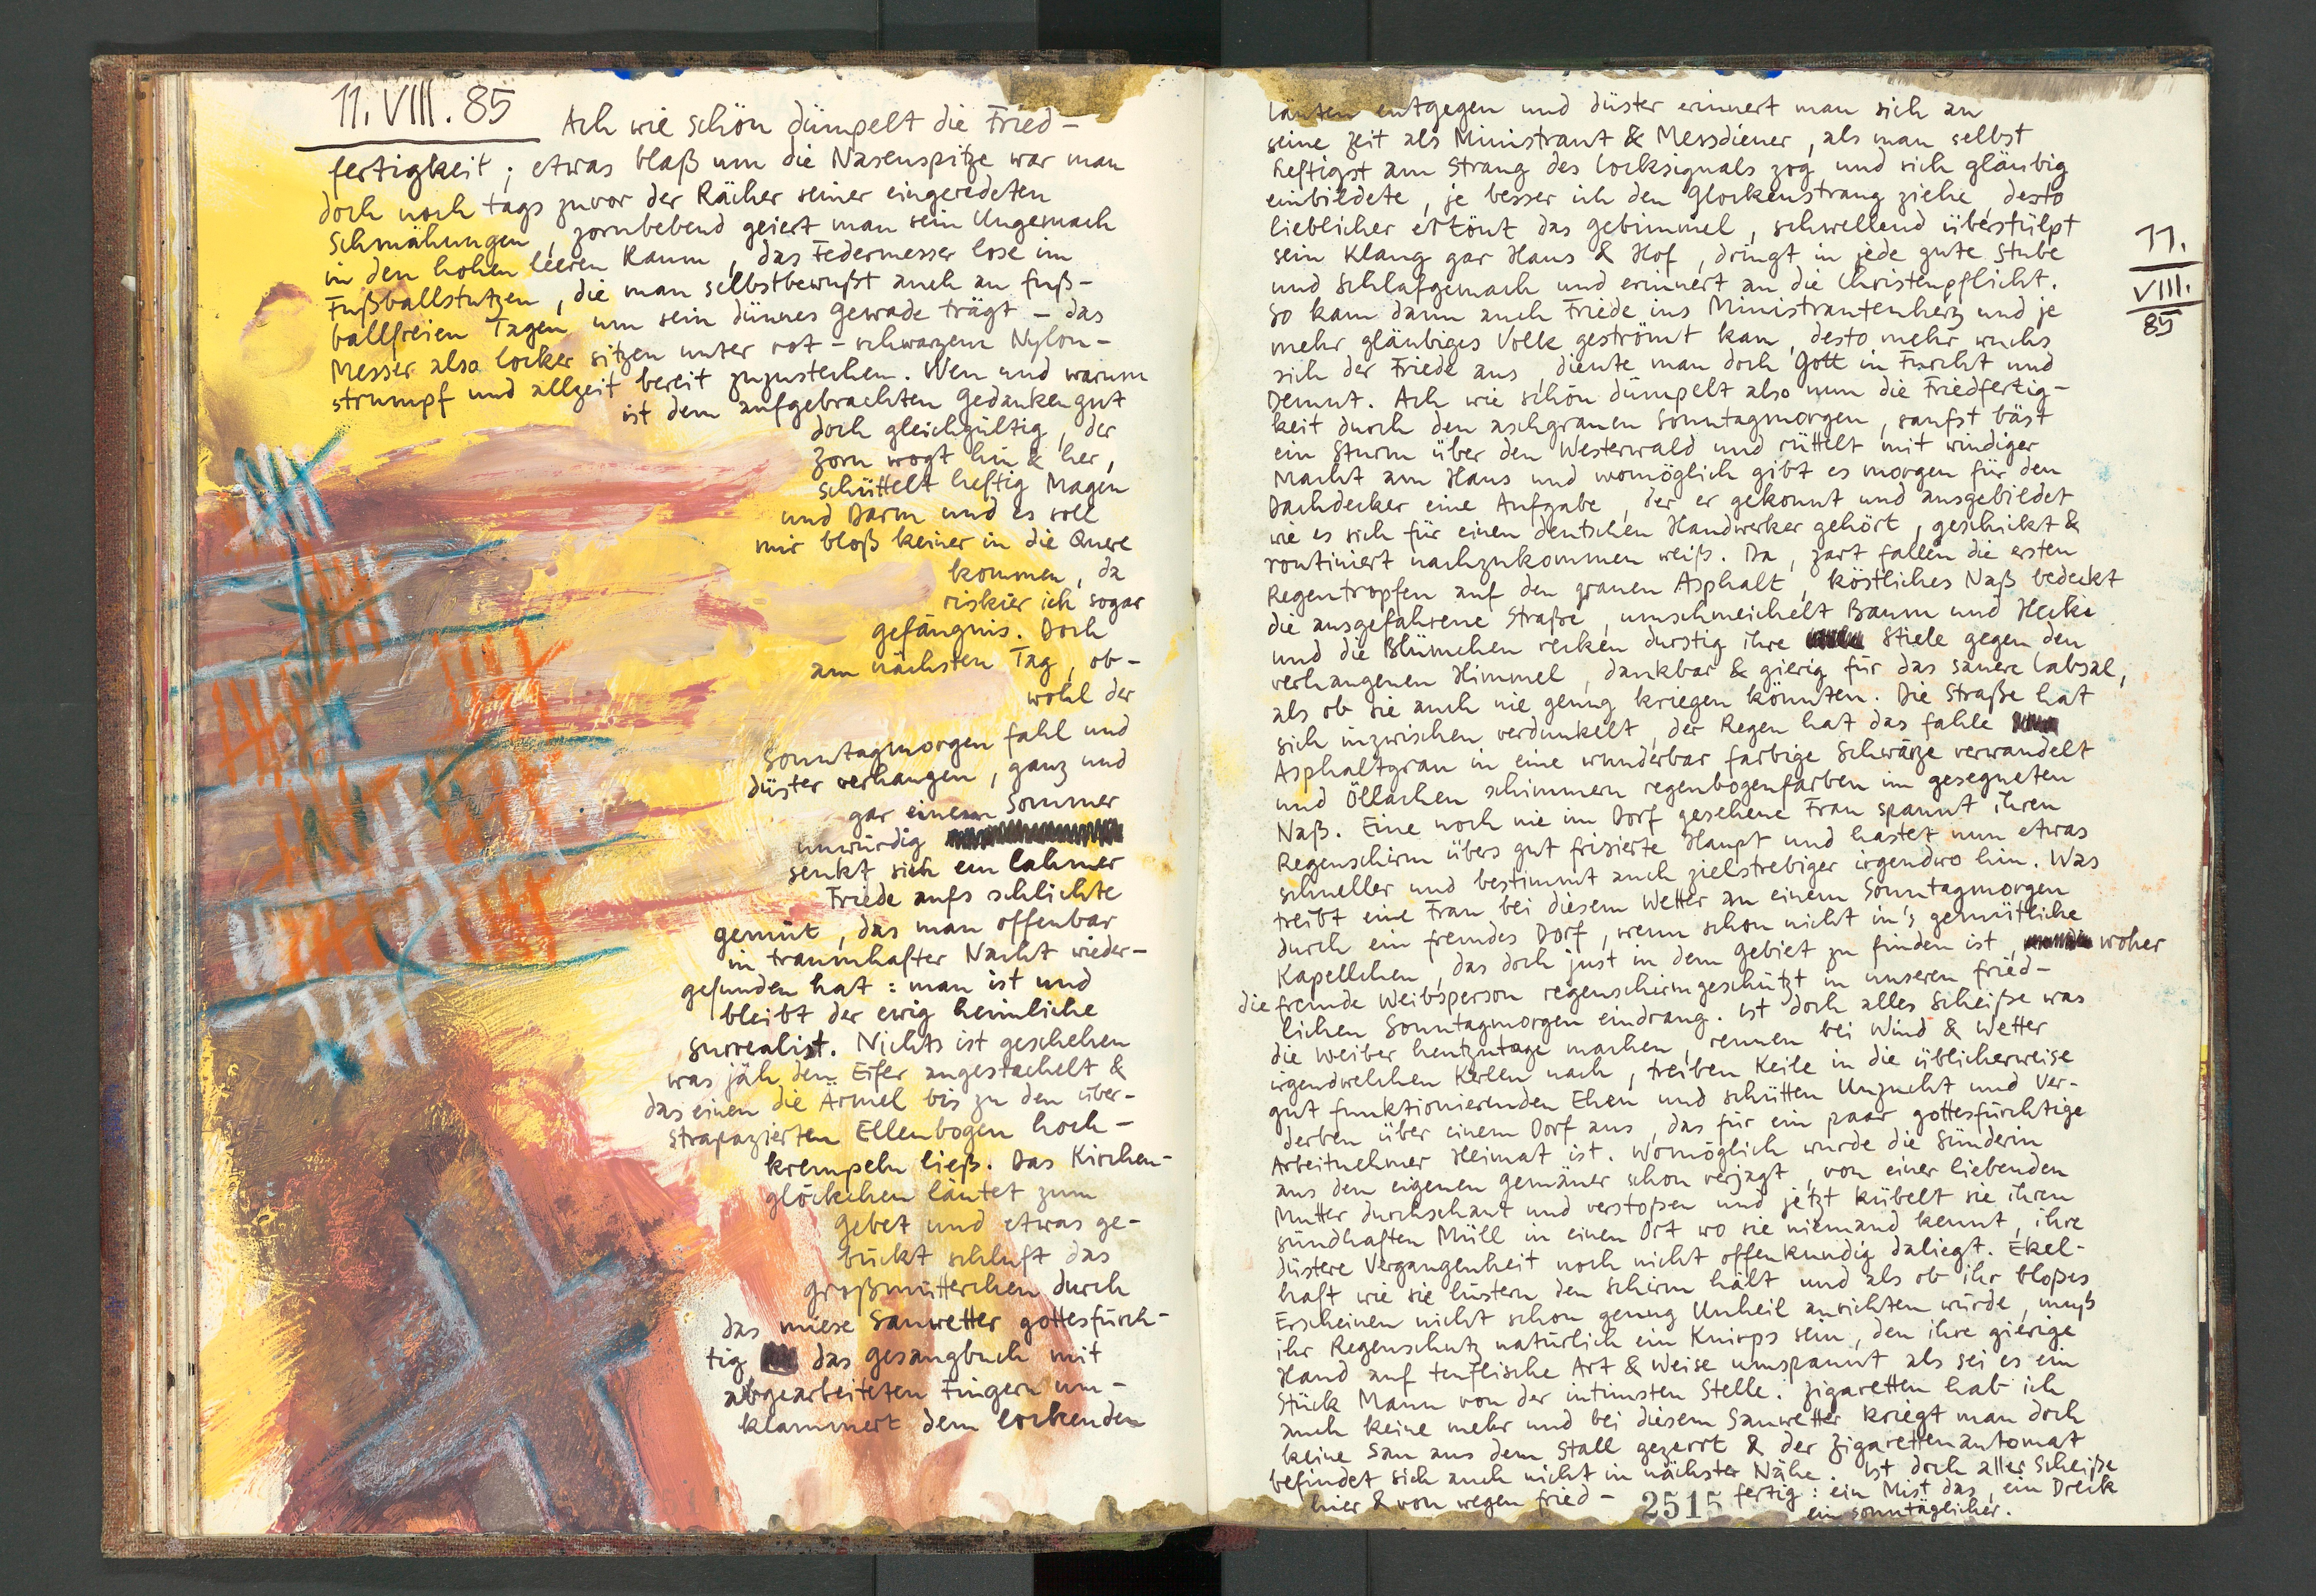 11. VIII. 85
Ach wie schön dümpelt die Fried-
fertigkeit; etwas blaß um die Nasenspitze war man
doch noch tags zuvor der Rächer seiner eingeredeten
Schmähungen, zornbebend geiert man sein Ungemach
in den hohen leeren Raum, das Federmesser lose im
Fußballstutzen, die man selbstbewußt auch an fuß-
ballfreien Tagen um sein dünnes Gewade trägt – das
Messer also locker sitzen unter rot-schwarzem Nylon-
strumpf und allzeit bereit zuzustechen. Wen und warum
ist dem aufgebrachten Gedankengut
doch gleichgültig, der
Zorn wogt hin & her,
schüttelt heftig Magen
und Darm und es soll
mir bloß keiner in die Quere
kommen, da
riskier ich sogar
Gefängnis. Doch
am nächsten Tag, ob-
wohl der
Sonntagmorgen fahl und
düster verhangen, ganz und
gar einem Sommer
unwürdig
senkt sich ein lahmer
Friede aufs schlichte
Gemüt, das man offenbar
in traumhafter Nacht wieder-
gefunden hat: man ist und
bleibt der ewig heimliche
Surrealist. Nichts ist geschehen
was jäh den Eifer angestachelt &
das einen die Ärmel bis zu den über-
strapazierten Ellenbogen hoch-
krempeln ließ. Das Kirchen-
glöckchen läutet zum
Gebet und etwas ge-
bückt schluft das
Großmütterchen durch
das miese Sauwetter gottesfürch-
tig das Gesangbuch mit
abgearbeiteten Fingern um-
klammert dem lockenden
läuten entgegen und düster erinnert man sich an
seine Zeit als Ministrant & Messdiener, als man selbst
heftigst am Strang des Locksignals zog und sich gläubig
einbildete, je besser ich den Glockenstrang ziehe, desto
lieblicher ertönt das Gebimmel, schwellend überstülpt
sein Klang gar Haus & Hof, dringt in jede gute Stube
und Schlafgemach und erinnert an die Christenpflicht.
So kam dann auch Friede ins Ministrantenherz und je
mehr gläubiges Volk geströmt kam, desto mehr wuchs
sich der Friede aus, diente man doch Gott in Furcht und
Demut. Ach wie schön dümpelt also nun die Friedfertig-
keit durch den aschgrauen Sonntagmorgen, sanfst bäst
ein Sturm über den Westerwald und rüttelt mit windiger
Macht am Haus und womöglich gibt es morgen für den
Dachdecker eine Aufgabe, der er gekonnt und ausgebildet
wie es sich für einen deutschen Handwerker gehört, geschickt &
routiniert nachzukommen weiß. Da, zart fallen die ersten
Regentropfen auf den grauen Asphalt, köstliches Naß bedeckt
die ausgefahrene Straße, umschmeichelt Baum und Hecke
und die Blümchen recken durstig ihre Stiele gegen den
verhangenen Himmel, dankbar & gierig für das sauere Labsal,
als ob sie auch nie genug kriegen könnten. Die Straße hat
sich inzwischen verdunkelt, der Regen hat das fahle
Asphaltgrau in eine wunderbar farbige Schwärze verwandelt
und Öllachen schimmern regenbogenfarben im gesegneten
Naß. Eine noch nie im Dorf gesehene Frau spannt ihren
Regenschirm übers gut frisierte Haupt und hastet nun etwas
schneller und bestimmt auch zielstrebiger irgendwo hin. Was
treibt eine Frau bei diesem Wetter an einem Sonntagmorgen
durch ein fremdes Dorf, wenn schon nicht in's gemütliche
Kapellchen, das doch just in dem Gebiet zu finden ist, woher
die fremde Weibsperson regenschirmgeschützt in unseren fried-
lichen Sonntagmorgen eindrang. Ist doch alles Scheiße was
die Weiber heutzutage machen, rennen bei Wind & Wetter
irgendwelchen Kerlen nach, treiben Keile in die üblicherweise
gut funktionierenden Ehen und schütten Unzucht und Ver-
derben über einem Dorf aus, das für ein paar gottesfürchtige
Arbeitnehmer Heimat ist. Womöglich wurde die Sünderin
aus dem eigenen Gemäuer schon verjagt, von einer liebenden
Mutter durchschaut und verstoßen und jetzt kübelt sie ihren
sündhaften Müll in einen Ort wo sie niemand kennt, ihre
düstere Vergangenheit noch nicht offenkundig daliegt. Ekel-
haft wie sie lüstern den Schirm hält und als ob ihr bloßes
Erscheinen nicht schon genug Unheil anrichten würde, muß
ihr Regenschutz natürlich ein Knirps sein, den ihre gierige
Hand auf teuflische Art & Weise umspannt als sei es ein
Stück Mann von der intimsten Stelle. Zigaretten hab ich
auch keine mehr und bei diesem Sauwetter kriegt man doch
keine Sau aus dem Stall gezerrt & der Zigarettenautomat
befindet sich auch nicht in nächster Nähe. Ist doch alles Scheiße
hier & von wegen fried- fertig: ein Mist das, ein Dreck
ein sonntäglicher.
2515
11.
VIII.
85